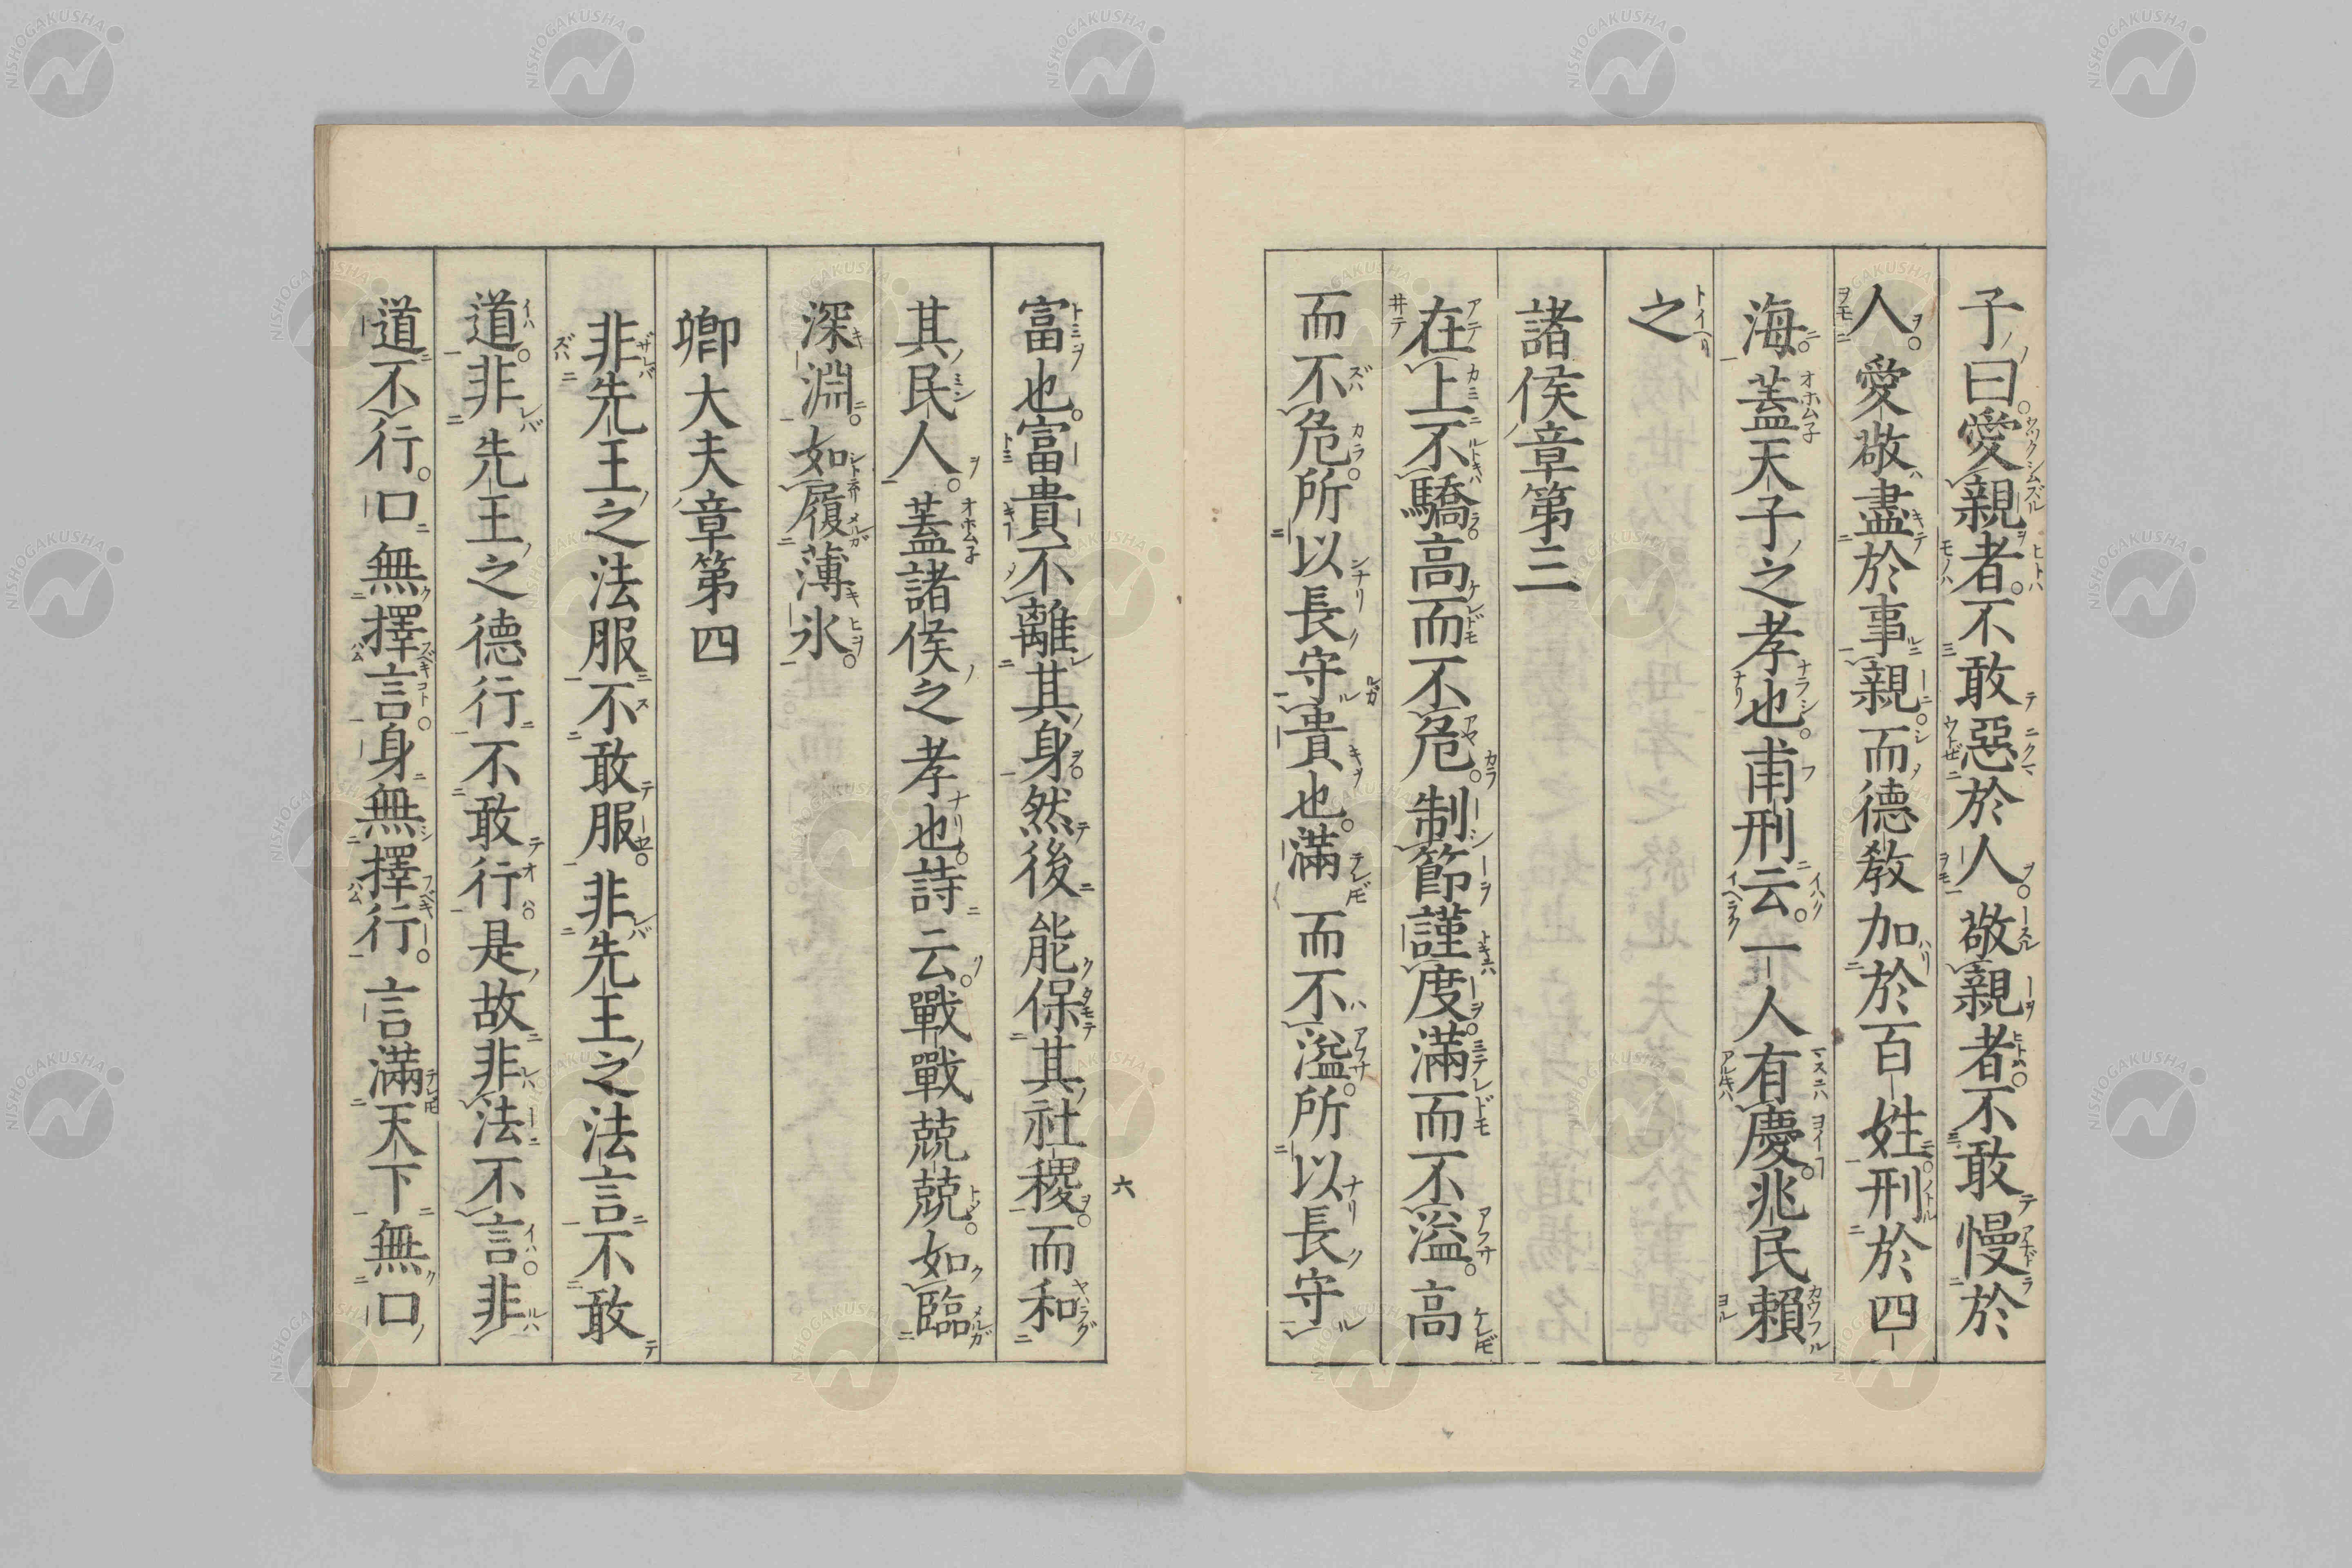 子曰愛親者不敢惡於人敬親者不敢慢於
人愛敬盡於事親而德教加於百姓刑於四
海蓋天子之孝也甫刑云一人有慶兆民賴
之
諸侯章第三
在上不驕高而不危制節謹度滿而不溢高
而不危所以長守貴也滿而不溢所以長守
富也富貴不離其身然後能保其社稷而和
其民人蓋諸侯之孝也詩云戰戰兢兢如臨
深淵如履薄氷
卿大夫章第四
非先王之法服不敢服非先王之法言不敢
道非先王之德行不敢行是故非法不言非
道不行口無擇言身無擇行言滿天下無口
六
NISHOGAKUSHA